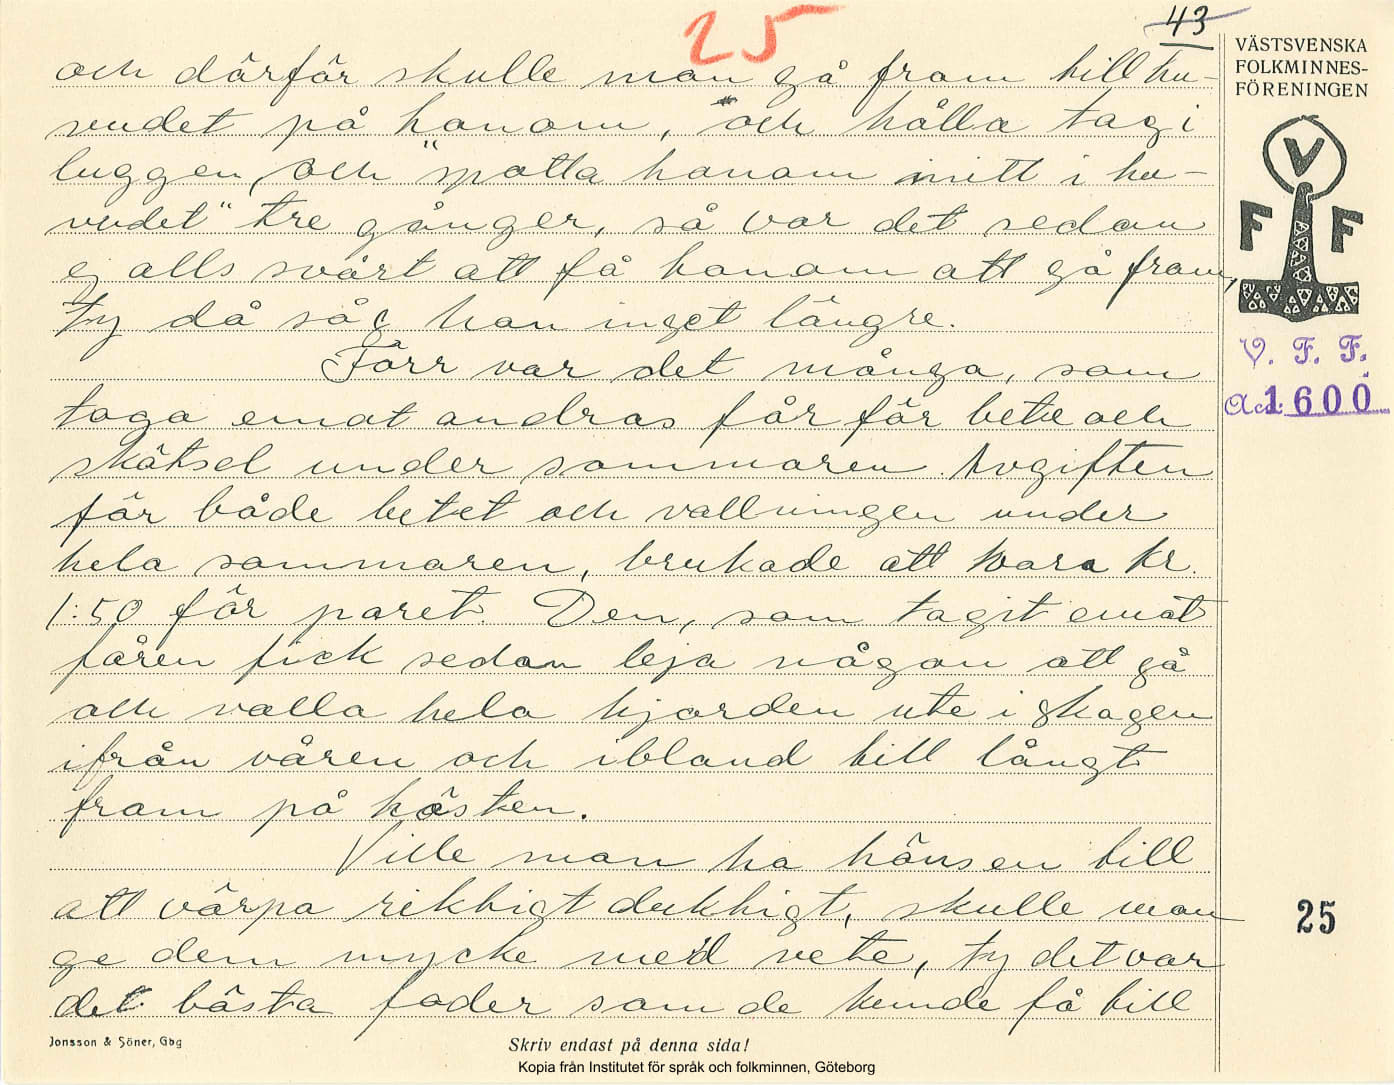 25
43
VÄSTSVENSKA
FOLKMINNES-
FÖRENINGEN
V
F F
V. F. F.
Acc. 1600
och därför skulle man gå fram till hu-
vudet på honom, och hålla tag i
luggen, och "spotta honom mitt i hu-
vudet" tre gånger, så var det sedan
ej alls svårt att få honom att gå fram,
ty då såg han inget längre.
Förr var det många, som
toga emot andras får för bete och
skötsel under sommaren. Avgiften
för både betet och vallningen under
hela sommaren, brukade att vara kr.
1:50 för paret. Den, som tagit emot
fåren fick sedan leja någon att gå
och valla hela hjorden ute i skogen
ifrån våren och ibland till långt
fram på hösten.
Ville man ha hönsen till
att värpa riktigt duktigt, skulle man
ge dem mycke med vete, ty det var
det bästa foder som de kunde få till
25
Jonsson & Söner, Gbg
Skriv endast på denna sida!
Kopia från Institutet för språk och folkminnen, Göteborg